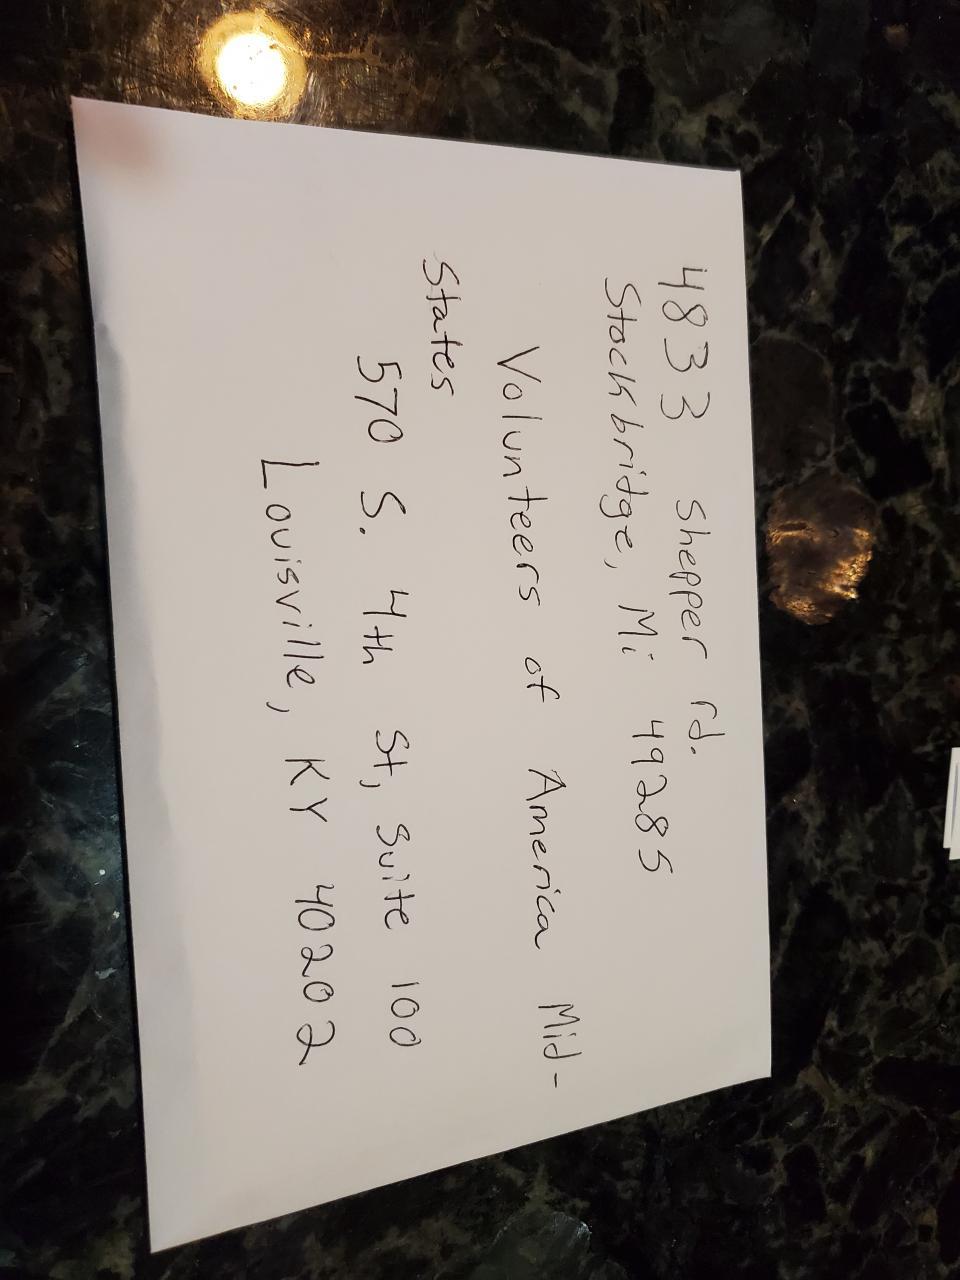 4833 Shepper rd.
Stockbridge, Mi 49285
Volunteers of America Mid-
States
570 S. 4th St, Suite 100
Louisville, KY 40202